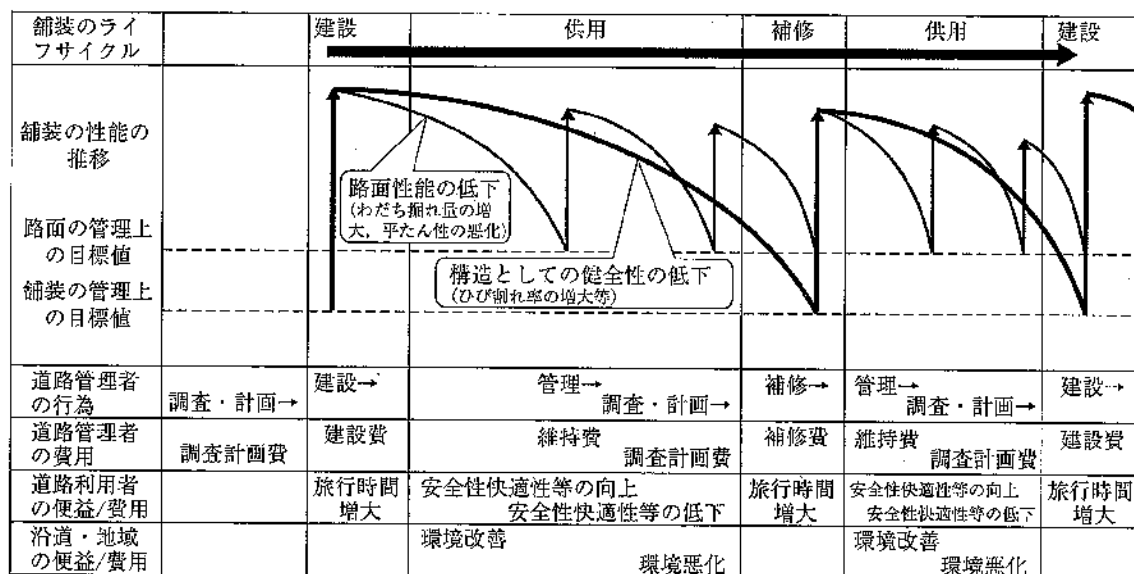 舗装のライ
フサイクル
建設 供用 補修 供用 建設
舗装の性能の
推移
路面性能の低下
(わだち掘れ量の増
大，平たん性の悪化)
路面の管理上
の目標値
構造としての健全性の低下
(ひび割れ率の増大等)
舗装の管理上
の目標値
道路管理者
の行為
調査・計画→
建設→
管理→
調査・計画→
補修→
管理→
調査・計画→
建設→
道路管理者
の費用
調査計画費
建設費
維持費
調査計画費
補修費
維持費
調査計画費
建設費
道路利用者
の便益/費用
旅行時間
増大
安全性快適性等の向上
安全性快適性等の低下
旅行時間
増大
安全性快適性等の向上
安全性快適性等の低下
旅行時間
増大
沿道・地域
の便益/費用
環境改善
環境悪化
環境改善
環境悪化